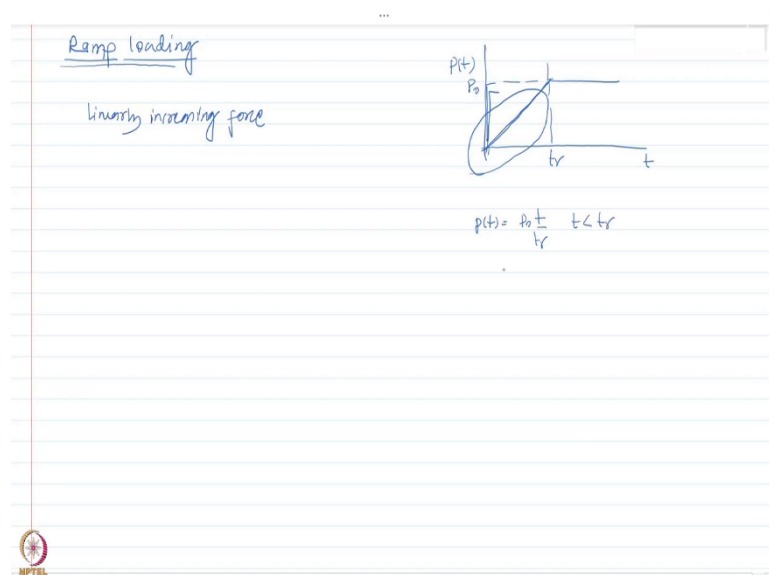 Ramp loading
linearly increasing force
P(t)
P₀
tr
t
p(t) = P₀ t/tr  t < tr
NPTEL